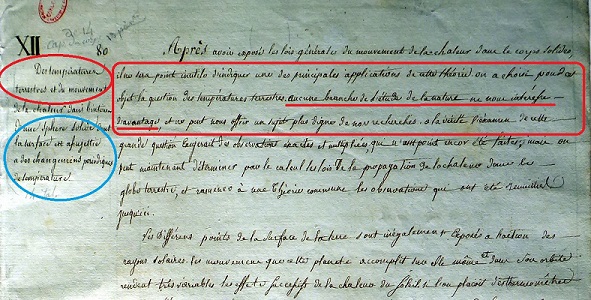 XII
80
Des températures
terrestres et du mouvement
de la chaleur dans l'intérieur
d'une sphère solide dont
la surface est assujettie
a des changemens périodiques
de température
Après avoir exposé les lois générales du mouvement de la chaleur dans les corps solides
il ne sera point inutile d'indiquer une des principales applications de cette théorie on a choisi pour cet
objet la question des températures terrestres. aucune branche de l'étude de la nature ne nous intéresse
davantage, et ne peut nous offrir un sujet plus digne de nos recherches. a la vérité l'examen de cette
grande question exigerait des observations exactes et multipliées qui n'ont point encor été faites; mais on
peut maintenant déterminer par le calcul les lois de la propagation de la chaleur dans le
globe terrestre, et ramener à une théorie commune les observations qui ont été recueillies
jusqu'ici.
Les différens points de la surface de la terre sont inégalement exposés a l'action des
rayons solaires. les mouvemens que cette planete accomplit sur elle même et dans son orbite
rendent très variables les effets de la chaleur du soleil si l'on plaçait des thermomètres